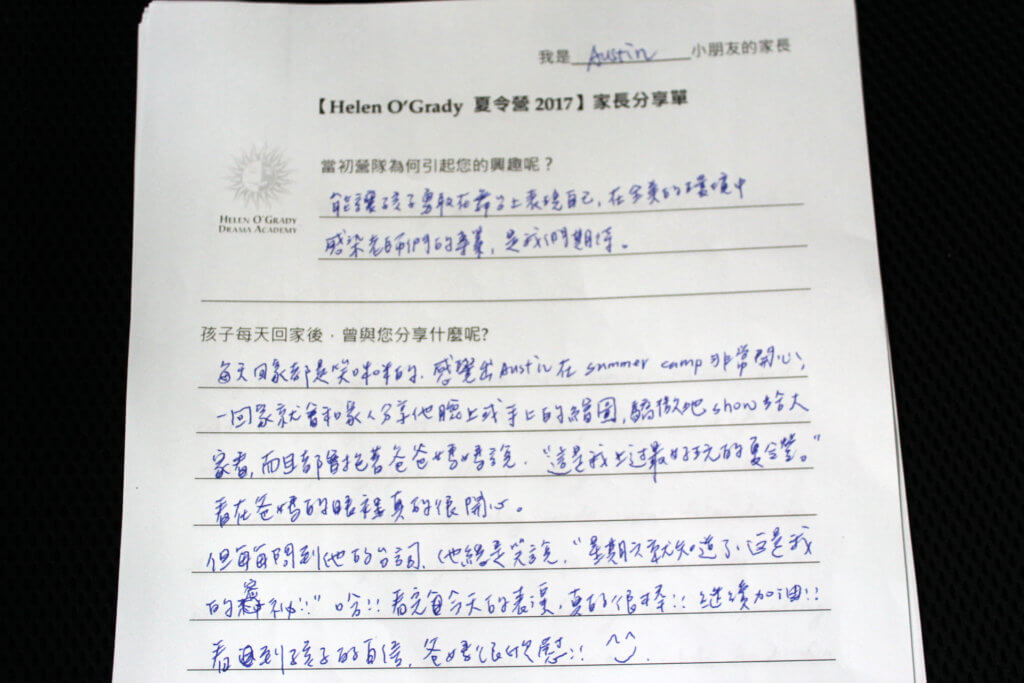 我是 Austin 小朋友的家長
【Helen O'Grady 夏令營 2017】家長分享單
HELEN O'GRADY
DRAMA ACADEMY
當初營隊為何引起您的興趣呢?
能讓孩子勇敢在舞台上表現自己,在全美的環境中
感染老師們的專業,是我們期待。
孩子每天回家後,曾與您分享什麼呢?
每天回家都是笑咪咪的,感覺出Austin在 summer camp 非常開心,
一回家就會和家人分享他臉上或手上的繪圖,驕傲地 show 給大
家看,而且都會抱著爸爸媽媽說,"這是我上過最好玩的夏令營。"
看在爸媽的眼裡真的很開心。
但每每問到他的台詞,他總是笑說,"星期六就知道了,這是我
的秘密!!" 哈!! 看完今天的表演,真的很棒!! 繼續加油!!
看到孩子的自信,爸媽很欣慰!! ^^.